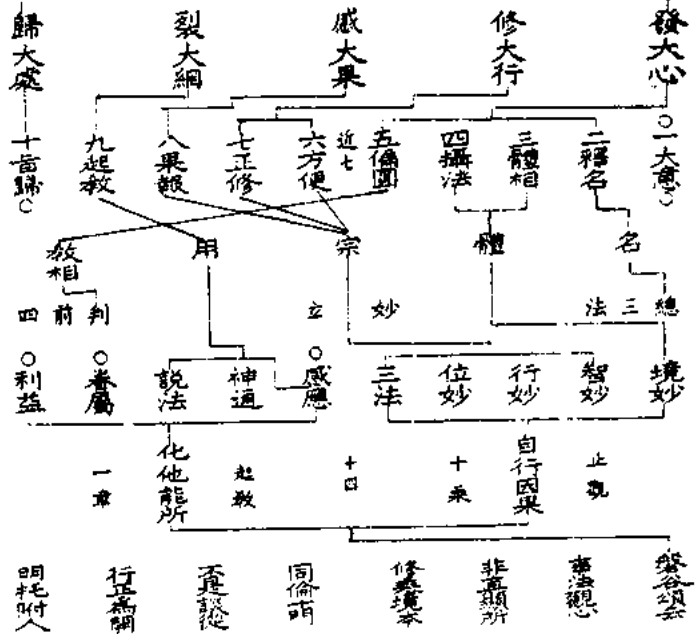 發大心
修大行
感大果
裂大網
歸大處
○一大意○
二釋名
三體相
四攝法
五偏圓
近七
六方便
七正修
八果報
九起教
十旨歸○
名
體
宗
用
教相
總
三
法
妙
立
判
前
四
境妙
智妙
行妙
位妙
三法
○感應
神通
說法
○眷屬
○利益
止觀
自行因果
十乘
十四
起教
化他能所
一章
事法觀心
修
同倫